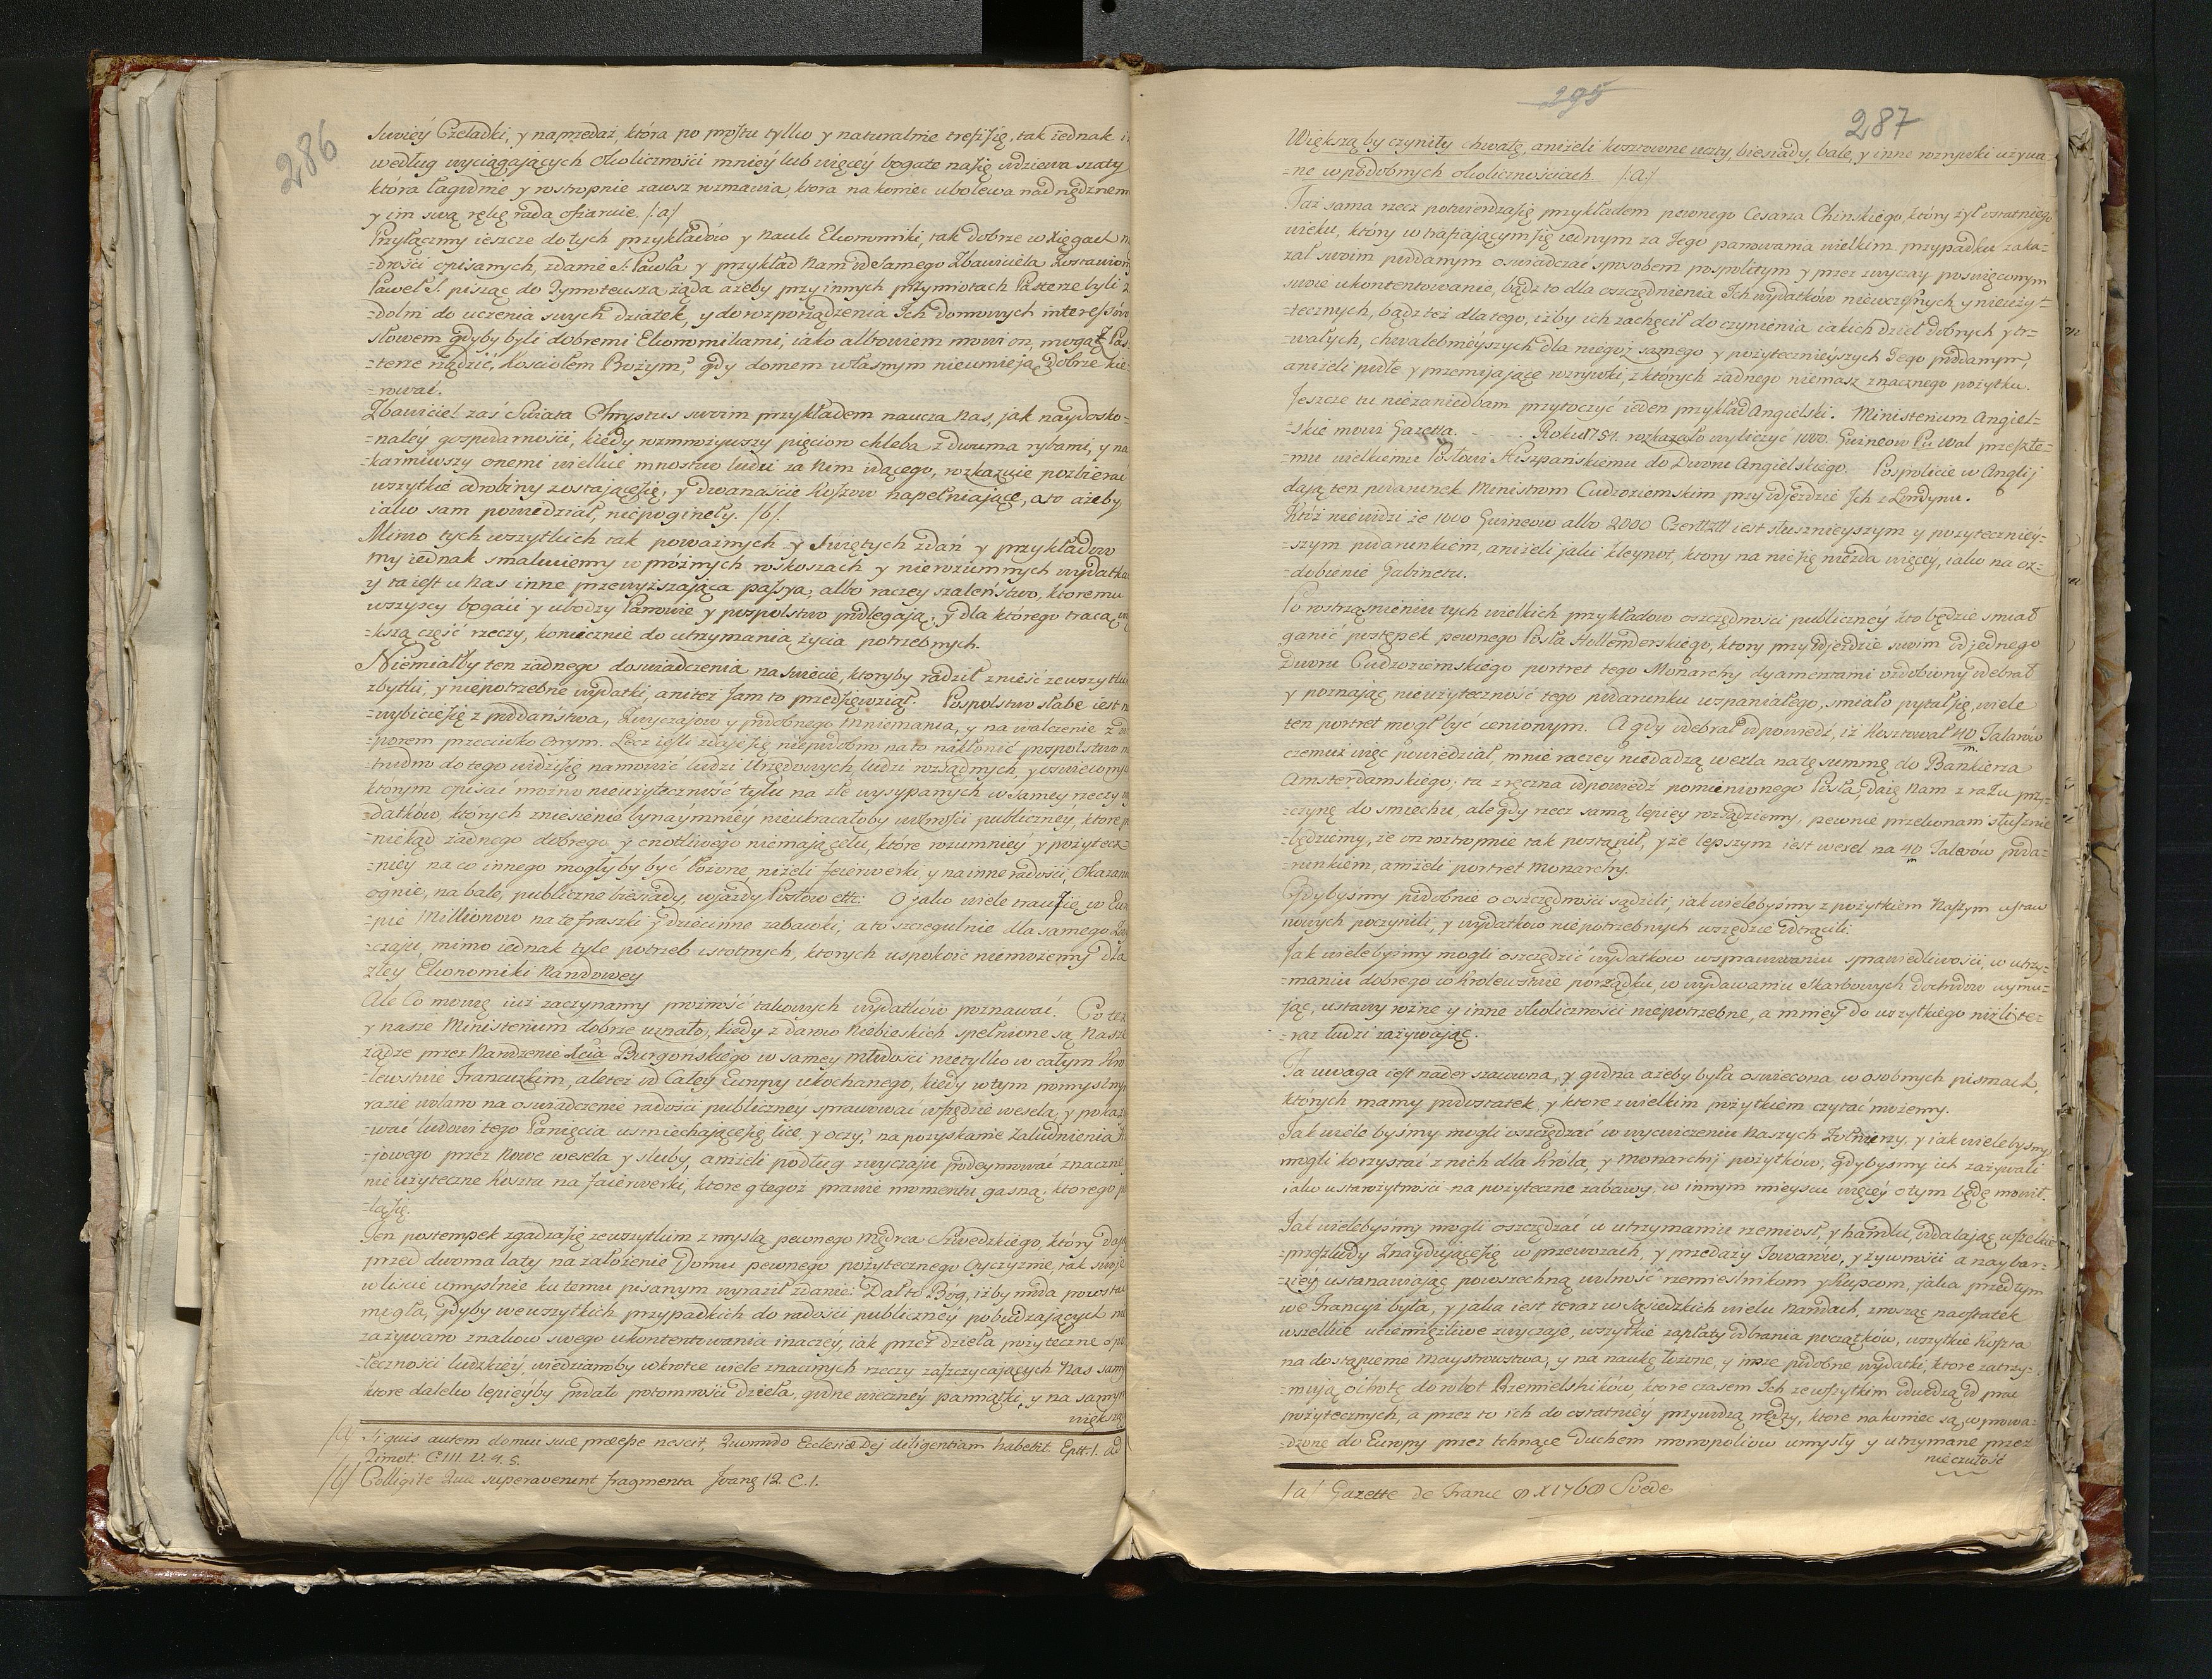 286
swieÿ Czeladki, y naprzedaż, która po prostu tylko y naturalnie trefi się, tak iednak i
według wyciągających okoliczności mnieÿ lub więceÿ bogate na się wdziewa szaty
która łagodnie y rostropnie zawsz rozmawia, ktora na koniec ubolewa nad nędznem
y im swą rękę rada ofiaruie. /:a:/
Przyłączmy ieszcze do tych przykładów y Nauk Ekonomiki, tak dobrze w Xięgach m
=drości opisanych, zdanie S. Pawła y przykład Nam od Samego Zbawiciela zostawiony
Paweł S. pisząc do Tymoteusza żąda ażeby przy innych przymiotach Pasterze byli z
=dolni do uczenia swych dziatek, y do rozporządzenia Ich domowych interessów
słowem gdyby byli dobremi Ekonomikami, iako albowiem mowi on, mogą Pas=
=terze rządzić, Kosciołem Bożym, gdy domem własnym nieumieją dobrze kie=
=rować.
Zbawiciel zaś Swiata Chrystus swoim przykładem naucza Nas, jak naydosko=
=naleÿ gospodarności, kiedy rozmnożywszy pięcioro chleba z dwuma rybami, y na
karmiwszy onemi wielkie mnostwo ludzi za Nim idącego, rozkazuie pozbierać
wszytkie odrobiny zostające się, y dwanaście Koszow napełniające, a to ażeby
iako sam powiedział, niepoginęły. /b/.
Mimo tych wszytkich tak poważnych y Swiętych zdań y przykładow
my iednak smakuiemy w próżnych roskoszach y nierozumnych wydatka
y ta iest u Nas inne przewyższająca passya, albo raczey szaleństwo, ktoremu
wszyscy bogaci y ubodzy Panowie y pospolstwo podlegają, y dla którego tracą wię
=kszą część rzeczy, koniecznie do utrzymania życia potrzebnych.
Niemiałby ten żadnego doswiadczenia na swiecie, ktoryby radził znieść ze wszytkim
zbytki, y niepotrzebne wydatki, aniteż Jam to przedsięwziął. Pospolstwo słabe iest n
=wybicie się z poddaństwa, Zwyczajow y podobnego mniemania, y na walczenie z
=porem przeciwko Onym. Lecz iesli zdaje się niepodobno na to nakłonić pospolstwo n
trudno do tego widzi się namowić ludzi Urzędowych, ludzi rozsądnych, y oswieconych
ktorym opisać można nieużyteczność tylu na złe wysypanych w Samey rzeczy wy
=datków, których zniesienie bynáymnieÿ nieukracałoby wolności publiczneÿ, ktore p
=niekąd żadnego dobrego y cnotliwego niemają celu, które rozumnieÿ y pożytecz=
=nieÿ na co innego mogłyby być łożone, niżeli feierwerki, y na inne radości, Okazane
ognie, na bale, publiczne biesiady, wjazdy Posłow ett: O jako wiele traci się w Eur
=pie Millionow na te fraszki y dziecinne zabawki, a to szczegulnie dla samego Zwy
czaju, mimo iednak tyle potrzeb istotnych, ktorych uspokoić niemożemy dla
zley Ekonomiki Narodowey
Ale Co mowię iuż zaczynamy prożność takowych wydatków poznawać. Co też
y nasze Ministerium dobrze uznało, kiedy z darow Niebieskich spełnione są Nasze
żądze przez Narodzenie Xcia Burgońskiego w samey młodości nietylko w całym Kró
lewstwie Francuzkim, aleteż od Całey Europy ukochanego, kiedy w tym pomyslnym
razie wolano na oswiadczenie radości publiczney sprawować wszędzie wesela, y pokazy
=wać ludowi tego Panięcia usmiechające się lice, y oczy, na pozyskanie zaludnienia Kra
=jowego przez Nowe wesela y sluby, aniżeli podług zwyczaju podeymować znaczne
nieużyteczne Koszta na faierwerki, ktore tegoż prawie momentu gasną, ktorego pa
=lą się.
Ten postempek zgadza się ze wszytkim z myslą pewnego Mędrca Szwedzkiego, który dają
przed dwoma laty na założenie Domu pewnego pożytecznego Oyczyznie, tak swoje
w liscie umyslnie ku temu pisanym wyraził zdanie: Dał to Bóg, iżby moda powstać
mogła, gdyby we wszytkich przypadkich do radości publiczneÿ pobudzających nie
zażywano znakow swego ukontentowania inaczeÿ, iak przez dzieła pożyteczne spo
=łeczności ludzkieÿ, wiedzianoby wkrotce wiele znacznych rzeczy zaszczycających Nas samy
ktore daleko lepieÿby podało potomności Dzieła, godne wieczneÿ pamiątki, y na samym
większą
/a/ Si quis autem domui suæ præesse nescit, Quomodo Ecclesiæ Dej diligentiam habebit Epst: I. ad
Timot: C III. V. 4. 5.
/b/ Colligite Quæ superaverunt fragmenta Joang 12. C. 1.
295
287
Większą by czyniły chwałę, aniżeli kosztowne uczty, biesiady, bale, y inne rozrywki używa=
=ne w podobnych okolicznościach. /:a:/
Taż sama rzecz potwierdza się przykładem pewnego Cesarza Chinskiego, który żył ostatniego
wieku, który w trafiającym się iednym za Jego panowania wielkim przypadku zaka=
zał swoim poddanym oswiadczać sposobem pospolitym y przez zwyczay poswięconym
swoie ukontentowanie, bądz to dla oszczędnienia Ich wydatków niewczesnych, y nieuży=
=tecznych, bądz też dla tego, iżby ich zachęcił do czynienia iakich dzieł dobrych y tr=
=wałych, chwalebnieÿszych dla niegoż samego y pożytecznieÿszych Jego poddanym,
aniżeli podłe y przemijające rozrywki, z których żadnego niemasz znacznego pożytku.
Jeszcze tu niezaniedbam przytoczyć ieden przykład Angielski. Ministerium Angiel=
=skie mowi Gazetta. - - - Roku 1751. rozkazało wyliczyć 1000. Guineow Pu Wal przeszłe=
=mu wielkiemu Posłowi Hiszpańskiemu do Dworu Angielskiego. Pospolicie w Anglij
dają ten podarunek Ministrom Cudzoziemskim przy odjeździe Ich z Londynu.
Któż niewidzi że 1000 Guineow albo 2000 Czerllzłł iest słusznieyszym y pożytecznieÿ=
=szym podarunkiem, aniżeli jaki kleynot, ktory na nic się niezda więceÿ, iako na oz=
=dobienie Gabinetu.
Po rostrząsnieniu tych wielkich przykładow oszczędności publiczneÿ kto będzie smiał
ganić postępek pewnego Posła Hollenderskiego, ktory przy odjezdzie swoim od jednego
Dworu Cudzoziemskiego portret tego Monarchy dyamentami ozdobiony odebrał
y poznając nieużyteczność tego podarunku wspaniałego, smiało pytał się, wiele
ten portret mogł być cenionym. A gdy odebrał odpowiedź, iż Kosztował 40 Talarów
m
czemuż więc powiedział, mnie raczey niedadzą wexla na tę summę do Bankiera
Amsterdamskiego: ta zręczna odpowiedź pomienionego Posła, daię Nam z razu przy=
=czynę do smiechu, ale gdy rzecz samą lepieÿ rozsądziemy, pewnie przekonani słusznie
będziemy, że on roztropnie tak postąpił, y że lepszym iest wexel na 40 Talerów poda=
m
=runkiem, aniżeli portret Monarchy.
Gdybyśmy podobnie o oszczędności sądzili, iak wielebyśmy z pożytkiem Naszym ustaw
nowych poczynili, y wydatkow niepotrzebnych wszędzie odtrącili.
Jak wielebyśmy mogli oszczędzić wydatkow w sprawowaniu sprawiedliwości, w utrzy=
=maniu dobrego w Krolewstwie porządku, w wydawaniu Skarbowych dochodow uymu=
jąc, ustawy rożne y inne okoliczności niepotrzebne, a mnieÿ do wszytkiego niżli te=
=raz ludzi zażywając.
Ta uwaga iest nader szacowna, y godna ażeby była oswiecona w osobnych pismach,
których mamy podostatek, y ktore z wielkim pożytkiem czytać możemy.
Jak wiele byśmy mogli oszczędzać w wycwiczeniu Naszych Żołnierzy, y iak wielebysmy
mogli korzystać z nich dla Króla, y Monarchij pożytków, gdybyśmy ich zażywali
iako u starożytności na pożyteczne zabawy, w innym mieyscu więceÿ o tym będę mowił.
Jak wielebyśmy mogli oszczędzać w utrzymaniu rzemiosł, y handlu, oddalając wszelkie
=przeszkody Znaydujące się w przewozach, y przedaży Towarów, y żywności a naybar=
=zieÿ ustanawiając powszechną wolność rzemieslnikom y Kupcom, jaka przedtym
we Francyi była, y jaka iest teraz w Sąsiedzkich wielu Narodach, znosząc naostatek
wszelkie uciemiężliwe zwyczaje, wszytkie zapłaty odbrania początków, wszytkie Koszta
na dostąpienie Maystrowstwa, y na naukę łożone, y insze podobne wydatki, ktore zatrzy=
=mują ochotę do robot Rzemieslników, ktore czasem Ich ze wszytkim odwodzą od prac
pożytecznych, a przez to ich do ostatnieÿ przywodzą nędzy, ktore nakoniec są wprowa=
=dzone do Europy przez tchnące duchem monopoliow umysły y utrzymane przez
nieczułość
/a/ Gazette de France 8 X 1760 Suede